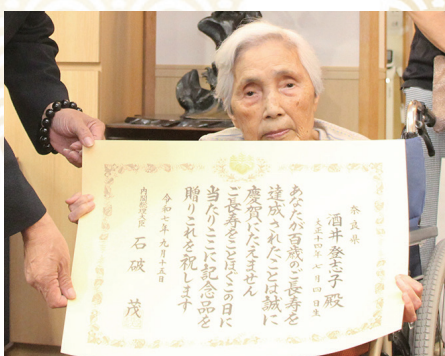 奈良県
酒井登志子殿
大正十四年七月四日生
あなたが百歳のご長寿を
達成されたことは誠に
慶賀にたえません
ご長寿をことほぎこの日に
当たりここに記念品を
贈りこれを祝します
令和七年九月十五日
内閣総理大臣 石破 茂